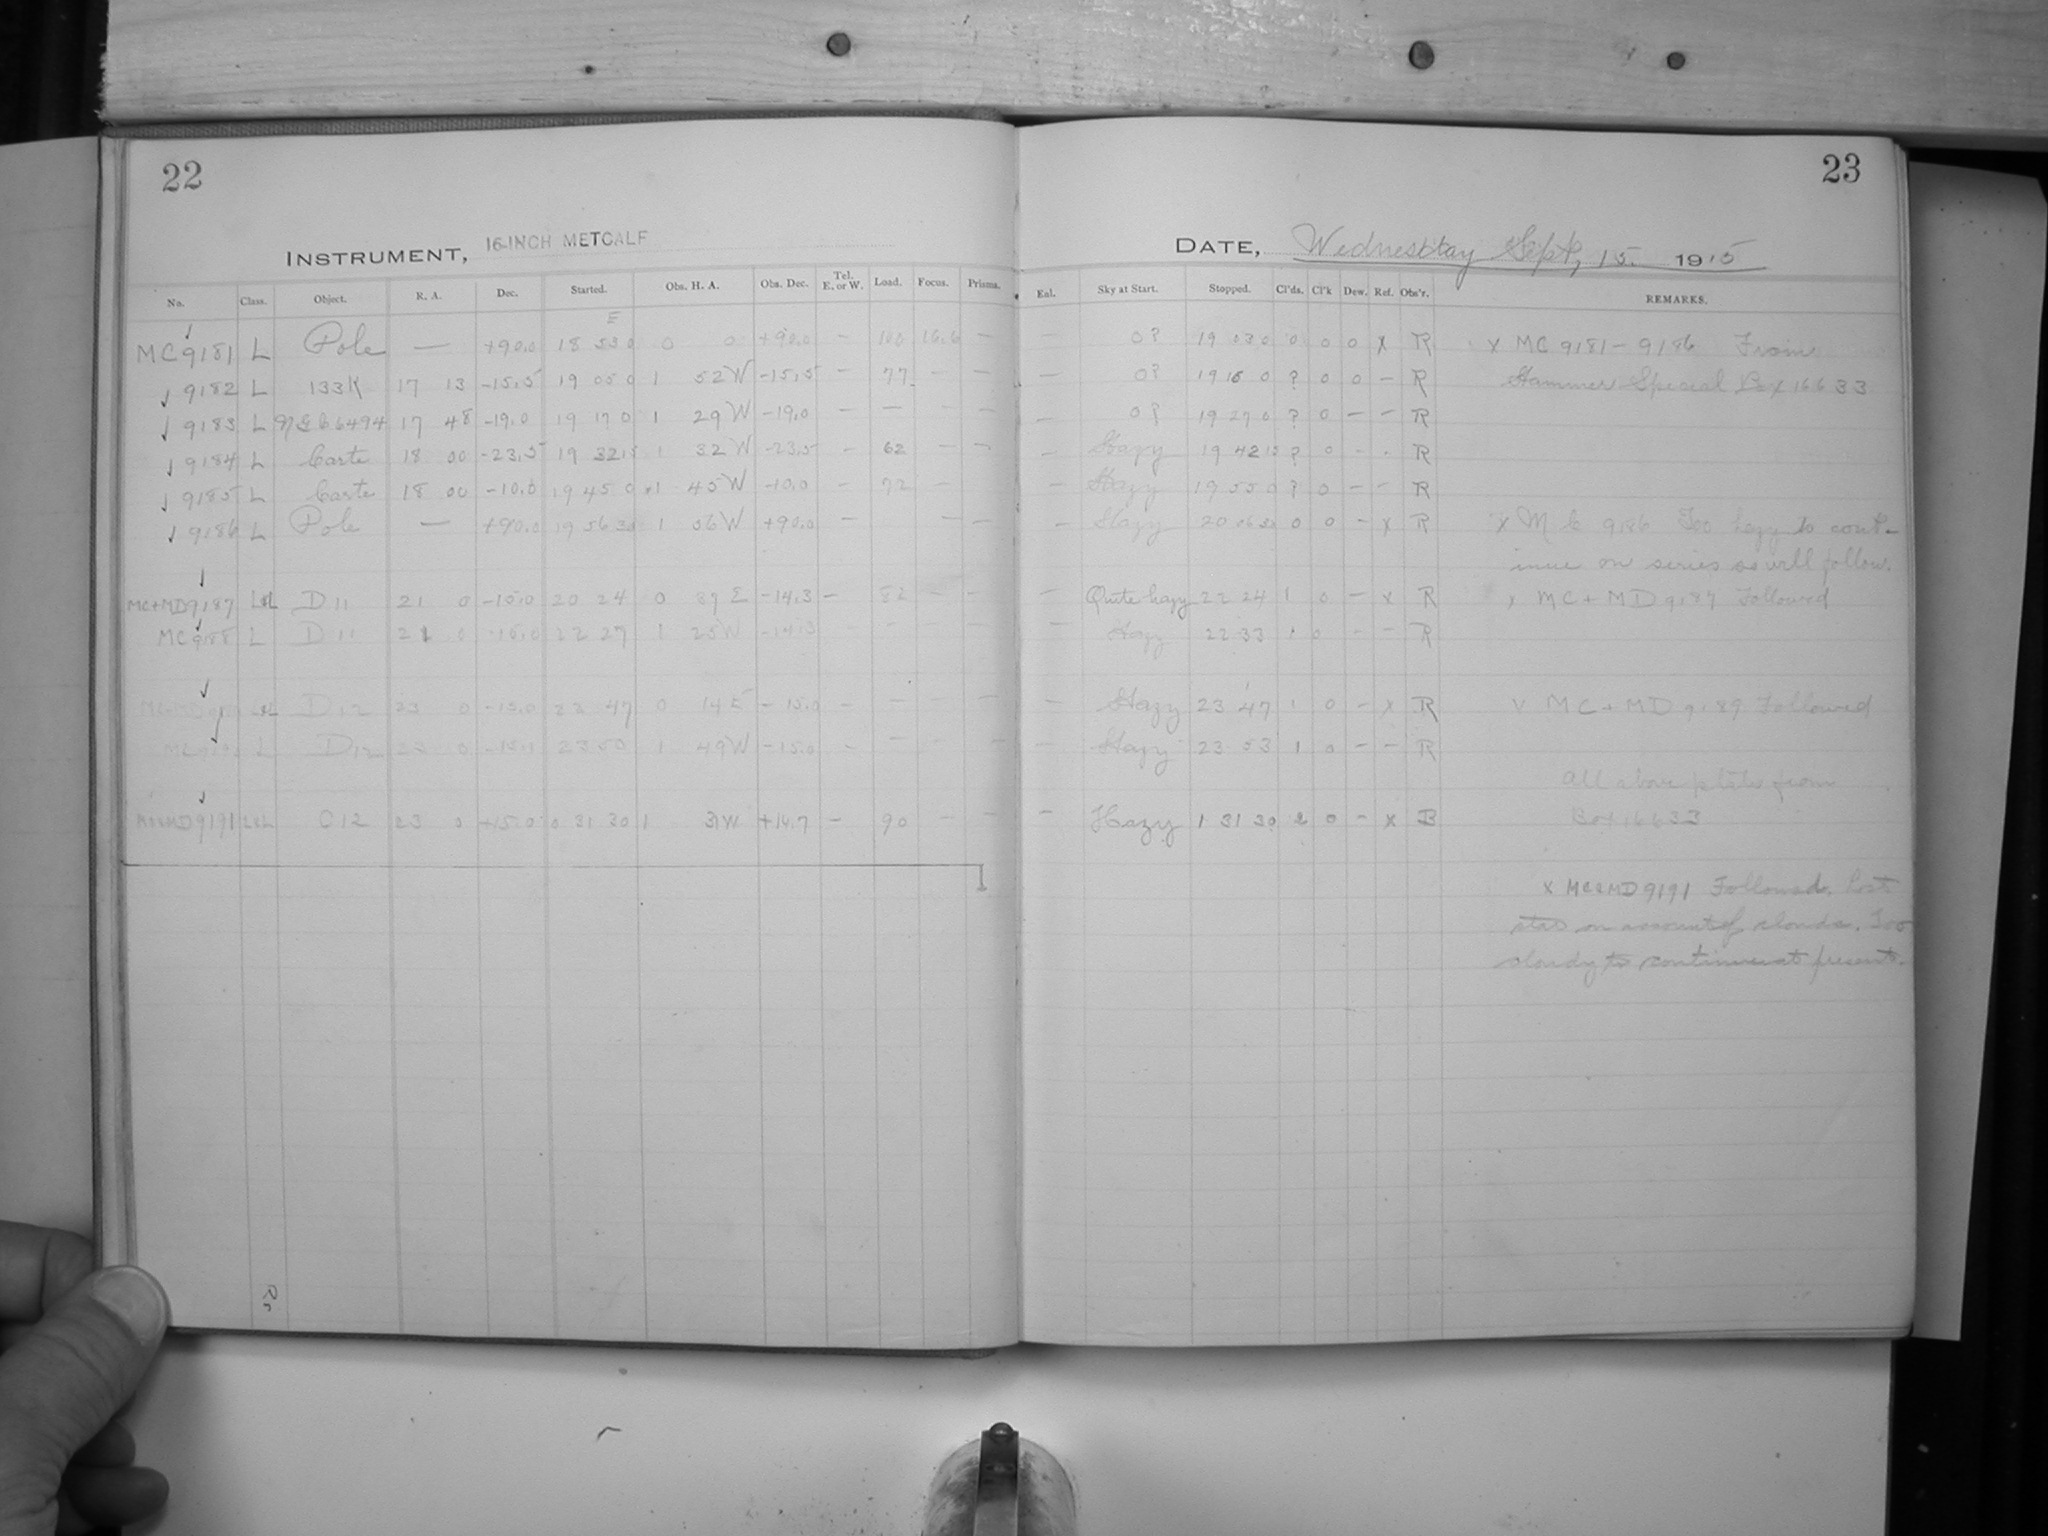 22
INSTRUMENT, 16-INCH METCALF
No. Class. Object. R. A. Dec. Started. Obs. H. A. Obs. Dec. Tel. E. or W. Load. Focus. Prisms.
E
MC 9181 L Pole — +90.0 18 53 0 0 0 +90.0 — 100 16.6 —
9182 L 133K 17 13 -15.5 19 05 0 1 52W -15.5 — 77 —
9183 L N.G.C. 6494 17 48 -19.0 19 17 0 1 29W -19.0 — — — —
9184 L Carte 18 00 -23.5 19 32 1 32W -23.5 — 62 — —
9185 L Carte 18 00 -10.0 19 45 0 1 45W -10.0 — 72 —
9186 L Pole — +90.0 19 56 30 1 56W +90.0 — — —
MC+MD9187 D11 21 0 -15.0 20 24 0 39 E -14.3 — 82 — —
MC9188 L D11 21 0 -15.0 22 27 1 25W -14.3 — — — —
D12 23 0 -15.0 22 47 0 14E -15.0 — — — —
L D12 23 0 -15.0 23 50 1 49W -15.0 — — —
MD9191 C12 23 0 +15.0 0 31 30 1 31W +14.7 — 90 — —
Rc
23
DATE, Wednesday Sept, 15. 1915
Enl. Sky at Start. Stopped. Cl'ds. Cl'k Dew. Ref. Obs'r. REMARKS.
— 0? 19 03 0 0 0 0 x R x MC 9181-9186 From
— 0? 19 15 0 ? 0 0 — R Hammer Special Box 16633
— 0? 19 27 0 ? 0 — — R
— Hazy 19 42 15 ? 0 — - R
— Hazy 19 55 0 ? 0 — — R
— Hazy 20 06 30 0 0 — x R x MC 9186 Too hazy to cont-
inue on series so will follow.
— Quite hazy 22 24 1 0 — x R x MC + MD 9187 Followed
— Hazy 22 33 1 0 — — R
— Hazy 23 47 1 0 — x R x MC + MD 9189 Followed
— Hazy 23 53 1 0 — — R
All above plates from
— Hazy 1 31 30 2 0 — x B Box 16633
x MC&MD 9191 Followed. Lost
star on account of clouds. Too
cloudy to continue at present.